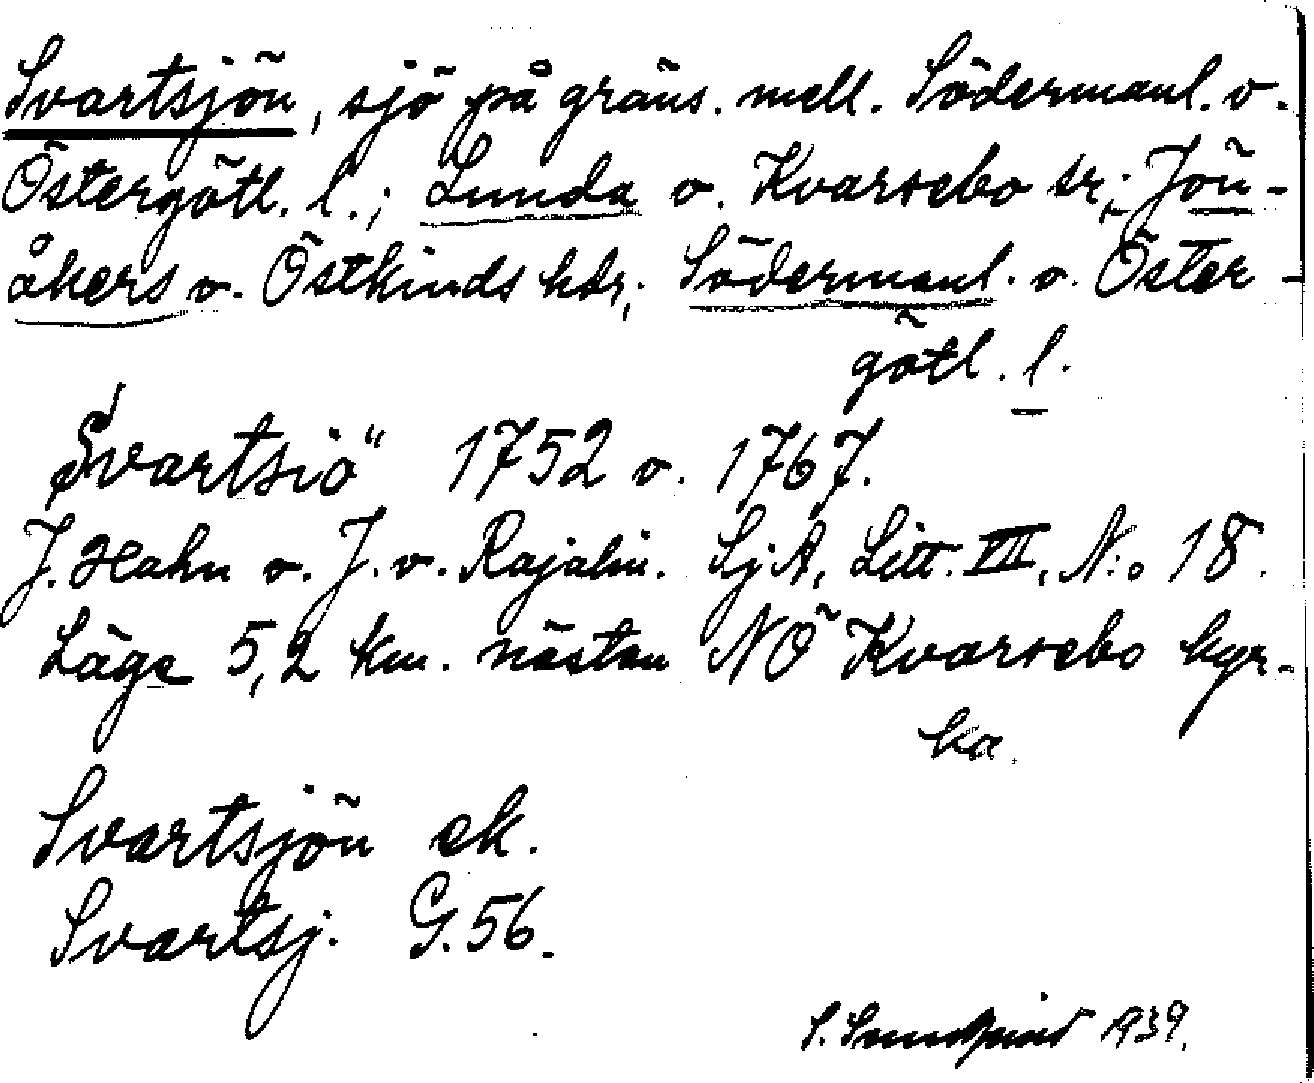 Svartsjön, sjö på gräns. mell. Södermanl. o.
Östergötl. l.; Lunda o. Kvarsebo sr; Jön-
åkers o. Östkinds hdr; Södermanl. o. Öster-
götl. l.
Svartsiö" 1752 o. 1767.
J. Hahn o. J. v. Rajalin. SjA, Litt. VII, N:o 18.
Läge 5,2 km. nästan NÖ Kvarsebo kyr-
ka.
Svartsjön ek.
Svartsj. G. 56.
S. Sundqvist 1939.